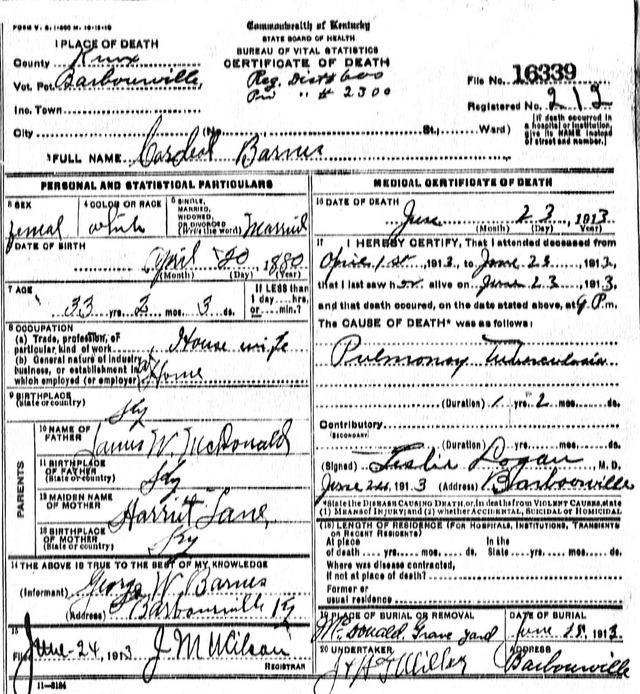 FORM V. S. 1-500 M. 10-12-10
Commonwealth of Kentucky
STATE BOARD OF HEALTH
BUREAU OF VITAL STATISTICS
CERTIFICATE OF DEATH
1 PLACE OF DEATH
County Knox
Vot. Pct. Barbourville
Inc. Town
City (No. St., Ward)
Reg. Dist # 600
Pri " # 2300
File No. 16339
Registered No. 212
[If death occurred in a hospital or institution, give its NAME instead of street and number.]
2 FULL NAME Cordial Barnes
PERSONAL AND STATISTICAL PARTICULARS
3 SEX
femal
4 COLOR OR RACE
white
5 SINGLE, MARRIED, WIDOWED, OR DIVORCED (Write the word) Married
6 DATE OF BIRTH
April 20 1880
(Month) (Day) (Year)
7 AGE
33 yrs. 2 mos. 3 ds.
If LESS than 1 day...hrs. or...min.?
8 OCCUPATION
(a) Trade, profession, or particular kind of work House wife
(b) General nature of industry, business, or establishment in which employed (or employer) at Home
9 BIRTHPLACE
(State or country) Ky
PARENTS
10 NAME OF FATHER James W. McDonald
11 BIRTHPLACE OF FATHER
(State or country) Ky
12 MAIDEN NAME OF MOTHER Harriet Lane,
13 BIRTHPLACE OF MOTHER
(State or country) Ky
14 THE ABOVE IS TRUE TO THE BEST OF MY KNOWLEDGE
(Informant) George W Barnes
(Address) Barbourville Ky
15
Filed June-24, 1913 J M Wilson
REGISTRAR
11-3184
MEDICAL CERTIFICATE OF DEATH
16 DATE OF DEATH
June 23, 1913
(Month) (Day) (Year)
17 I HEREBY CERTIFY, That I attended deceased from
April 1st 1913, to June 23 1913,
that I last saw her alive on June 23 1913,
and that death occured, on the date stated above, at 9 P.m.
The CAUSE OF DEATH* was as follows:
Pulmonay Tuberculosis
(Duration) 1 yrs. 2 mos. ds.
Contributory
(SECONDARY)
(Duration) yrs. mos. ds.
(Signed) Leslie Logan M. D.
June 24, 1913 (Address) Barbourville
*State the DISEASE CAUSING DEATH, or, in deaths from VIOLENT CAUSES, state (1) MEANS OF INJURY; and (2) whether ACCIDENTAL, SUICIDAL OR HOMICIDAL
18 LENGTH OF RESIDENCE (FOR HOSPITALS, INSTITUTIONS, TRANSIENTS OR RECENT RESIDENTS)
At place of death yrs. mos. ds. In the State yrs. mos. ds.
Where was disease contracted,
If not at place of death?
Former or usual residence
19 PLACE OF BURIAL OR REMOVAL
McDonald Grave yard
DATE OF BURIAL
June 25, 1913
20 UNDERTAKER
Miller
ADDRESS
Barbourville